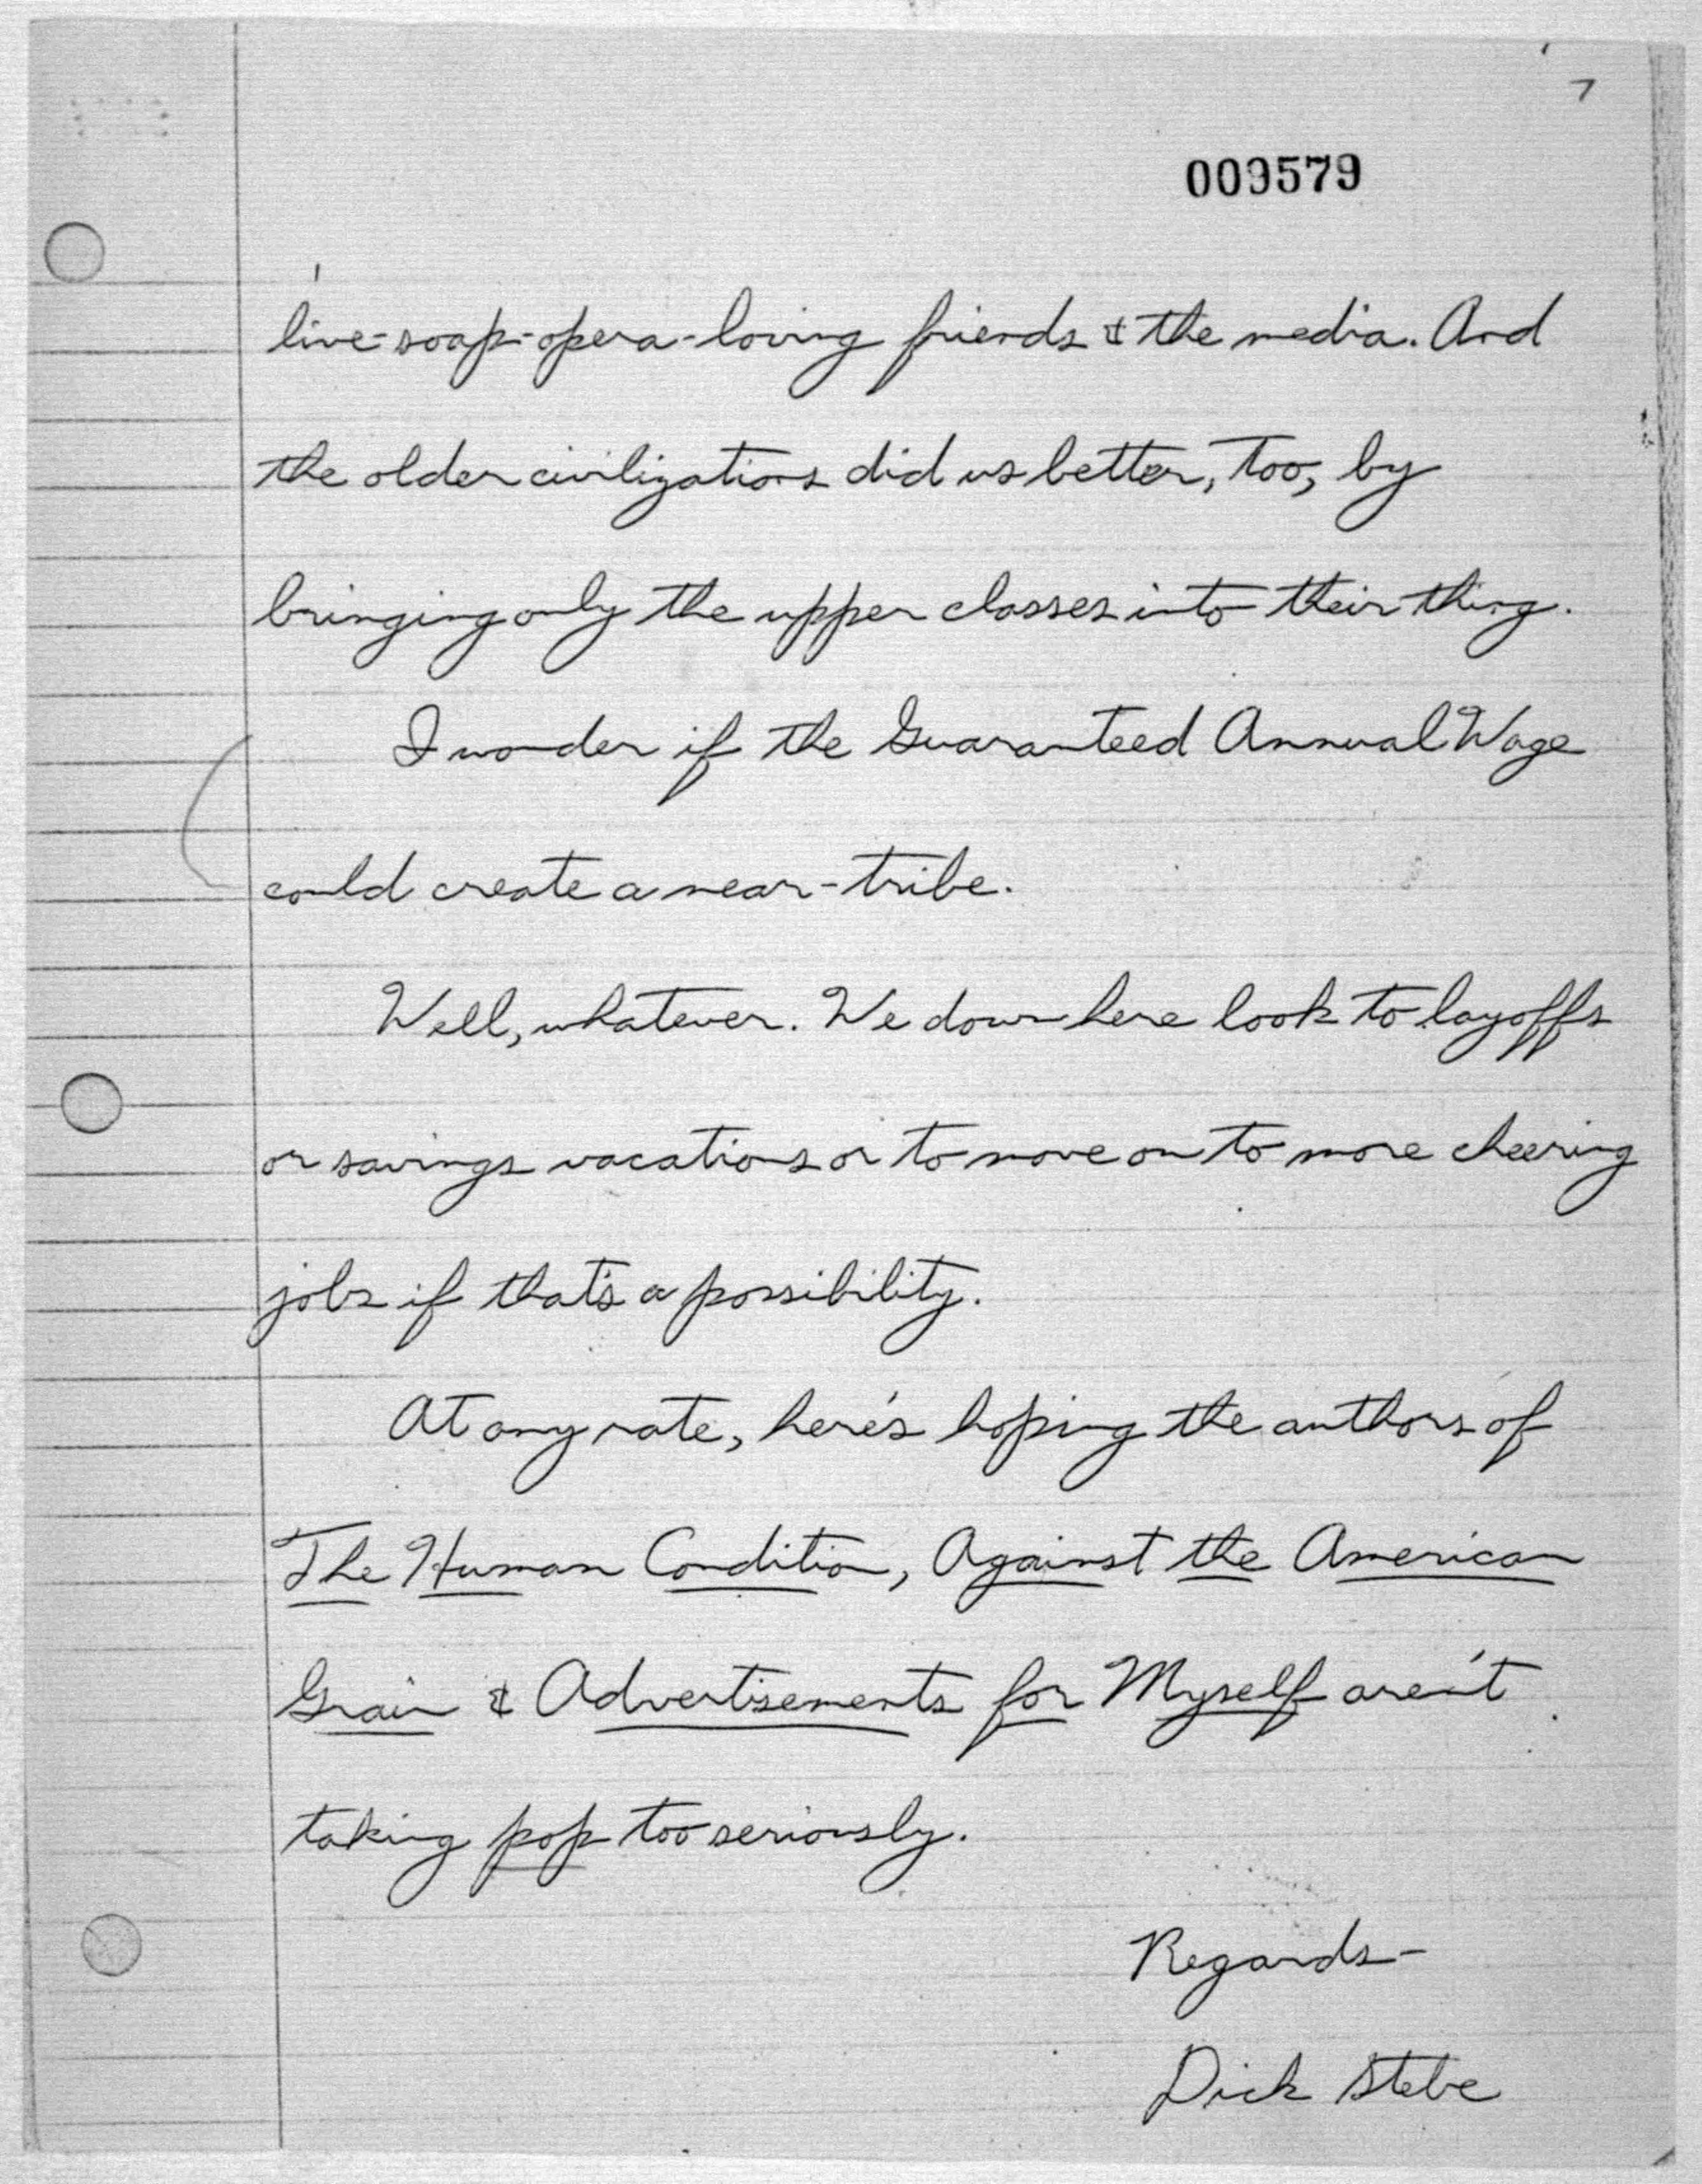 7
009579
live-soap-opera-loving friends & the media. And
the older civilizations did us better, too, by
bringing only the upper classes into their thing.
I wonder if the Guaranteed Annual Wage
could create a near-tribe.
Well, whatever. We down here look to layoffs
or savings vacations or to move on to more cheering
jobs if that's a possibility.
At any rate, here's hoping the authors of
The Human Condition, Against the American
Grain & Advertisements for Myself aren't
taking pop too seriously.
Regards-
Dick Stebe